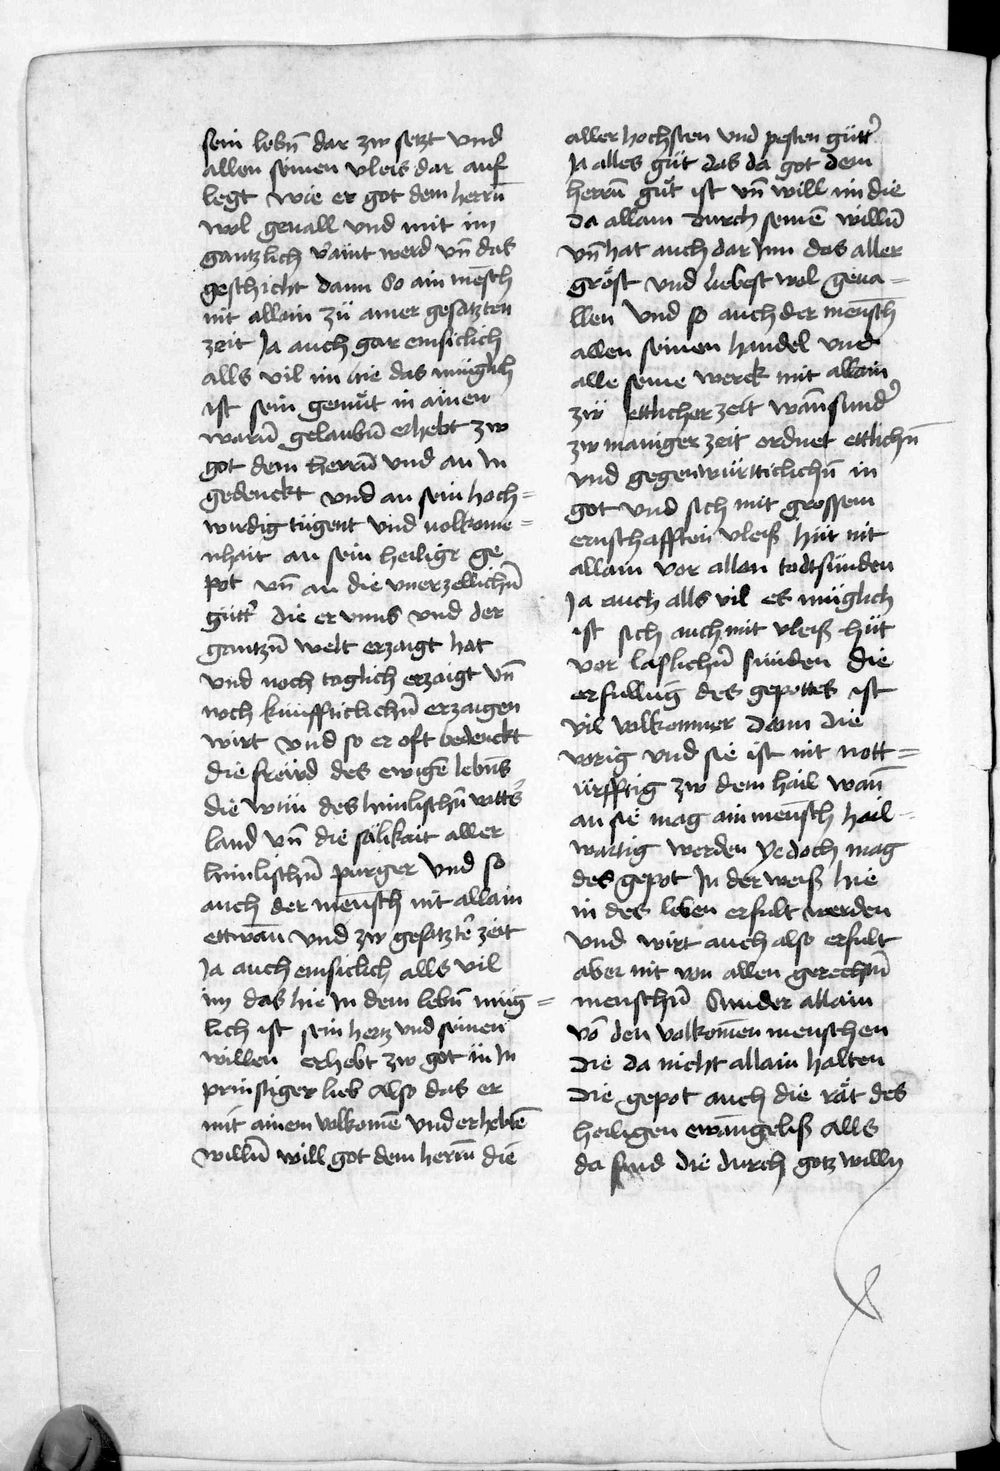 sein lebn̄ dar zw setzt vnd
allen seinen vleis dar auf
legt wie er got dem herrn̄
wol geuall vnd mit im
gantzlich v̓aint werd vn̄ das
geschicht dann So ain mēsch
nit allain zü ainer gesatzten
zeit Ja auch gar emsiclich
alls vil im hie das müglich
ist sein gemüt in ainen
warn̄ gelaubn̄ erhebt zw
got dem herrn̄ vnd an In
gedenckt vnd an sein hoch=
wirdig tügent vnd uolkome=
nhait an sein heilige ge
pot vn̄ an die vnerzellichn̄
gütt̓ die er vnns vnd der
gantzn̄ welt erzaigt hat
vnd noch toglich erzaigt vn̄
noch künffticlichn̄ erzaigen
wirt vnd so er oft bedenckt
die freẅd des ewigē lebn̄s
die wün des himlischn̄ vatt̓s
land vn̄ die sälikait aller
himlischn̄ purger vnd so
auch der mensch nit allain
ettwān vnd zw gesatzt̓ zeit
Ja auch emsiclich alls vil
im das hie In dem lebn̄ müg=
lich ist sein hertz vnd seinen
willen erhebt zw got in In
prinstiger lieb Also das er
mit ainem volkomē vnd erhebtē
willn̄ will got dem herrn̄ die
aller hochsten vnd pesten gütt̓
Ja alles güt das da got dem
herrn̄ güt ist vn̄ will im die
da allain durch seinē willn̄
vn̄ hat auch dar Inn das aller
gröst vnd liebest wol geua=
llen vnd so auch der mensch
allen seinen handel vnd
alle seine werck nit allain
zw ettlicher zeit wann sund̓
zw maniger zeit ordnet ettlichn̄
vnd gegenwürtticlichn̄ in
got vnd sich mit grossem
ernschafften vleiß hüt nit
allain vor allen todtsünden
Ja auch alls vil es müglich
ist sich auch mit vleiß hüt
vor laslichn̄ sünden die
erfullūg des gepottes ist
vil volkomner dann die
vorig vnd sie ist nit nott=
ürfftig zw dem hail wān
an sie mag ain mensch hail=
wartig werden yedoch mag
des gepot In der weiß hie
in des leben erfult werden
vnd wirt auch also erfult
aber nit von allen gerechtn̄
menschn̄ Sunder allain
vō den volkomēn menschen
die da nicht allain halten
die gepot auch die rät des
heiligen ewangeliß Alls
da sind die durch gotz willn̄